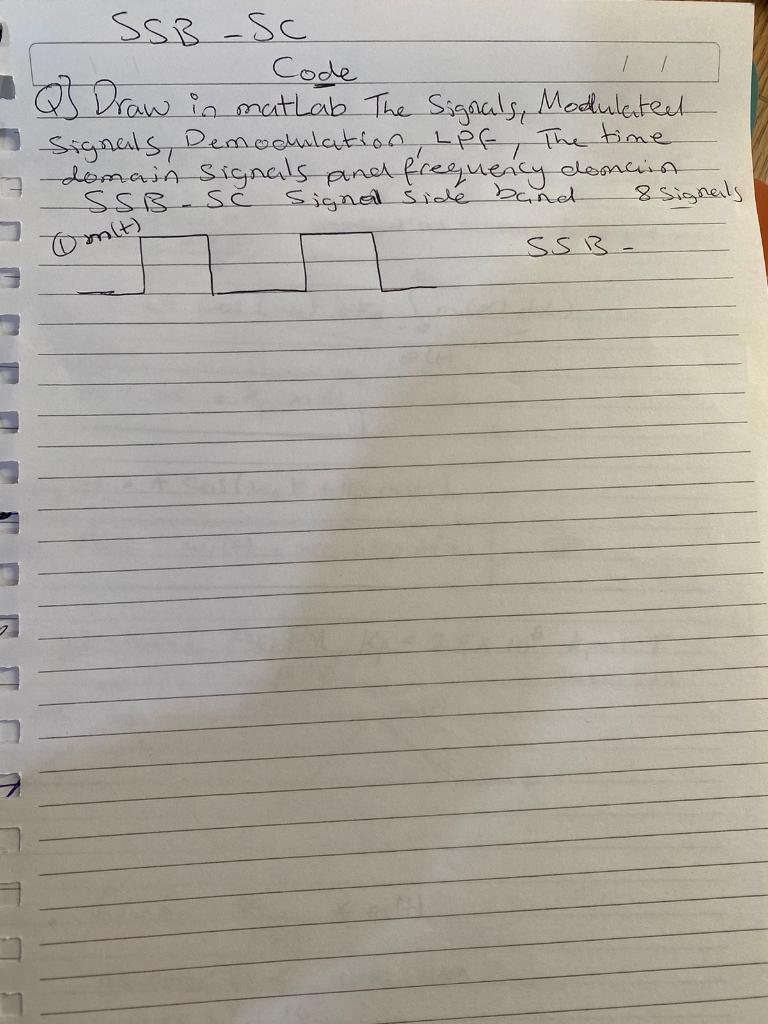 SSB - SC
Code / /
Q] Draw in matLab The Signals, Modulated
Signals, Demodulation, LPF, The time
domain signals and frequency domain
SSB - SC Signal Side band 8 Signals
① m(t) SSB -